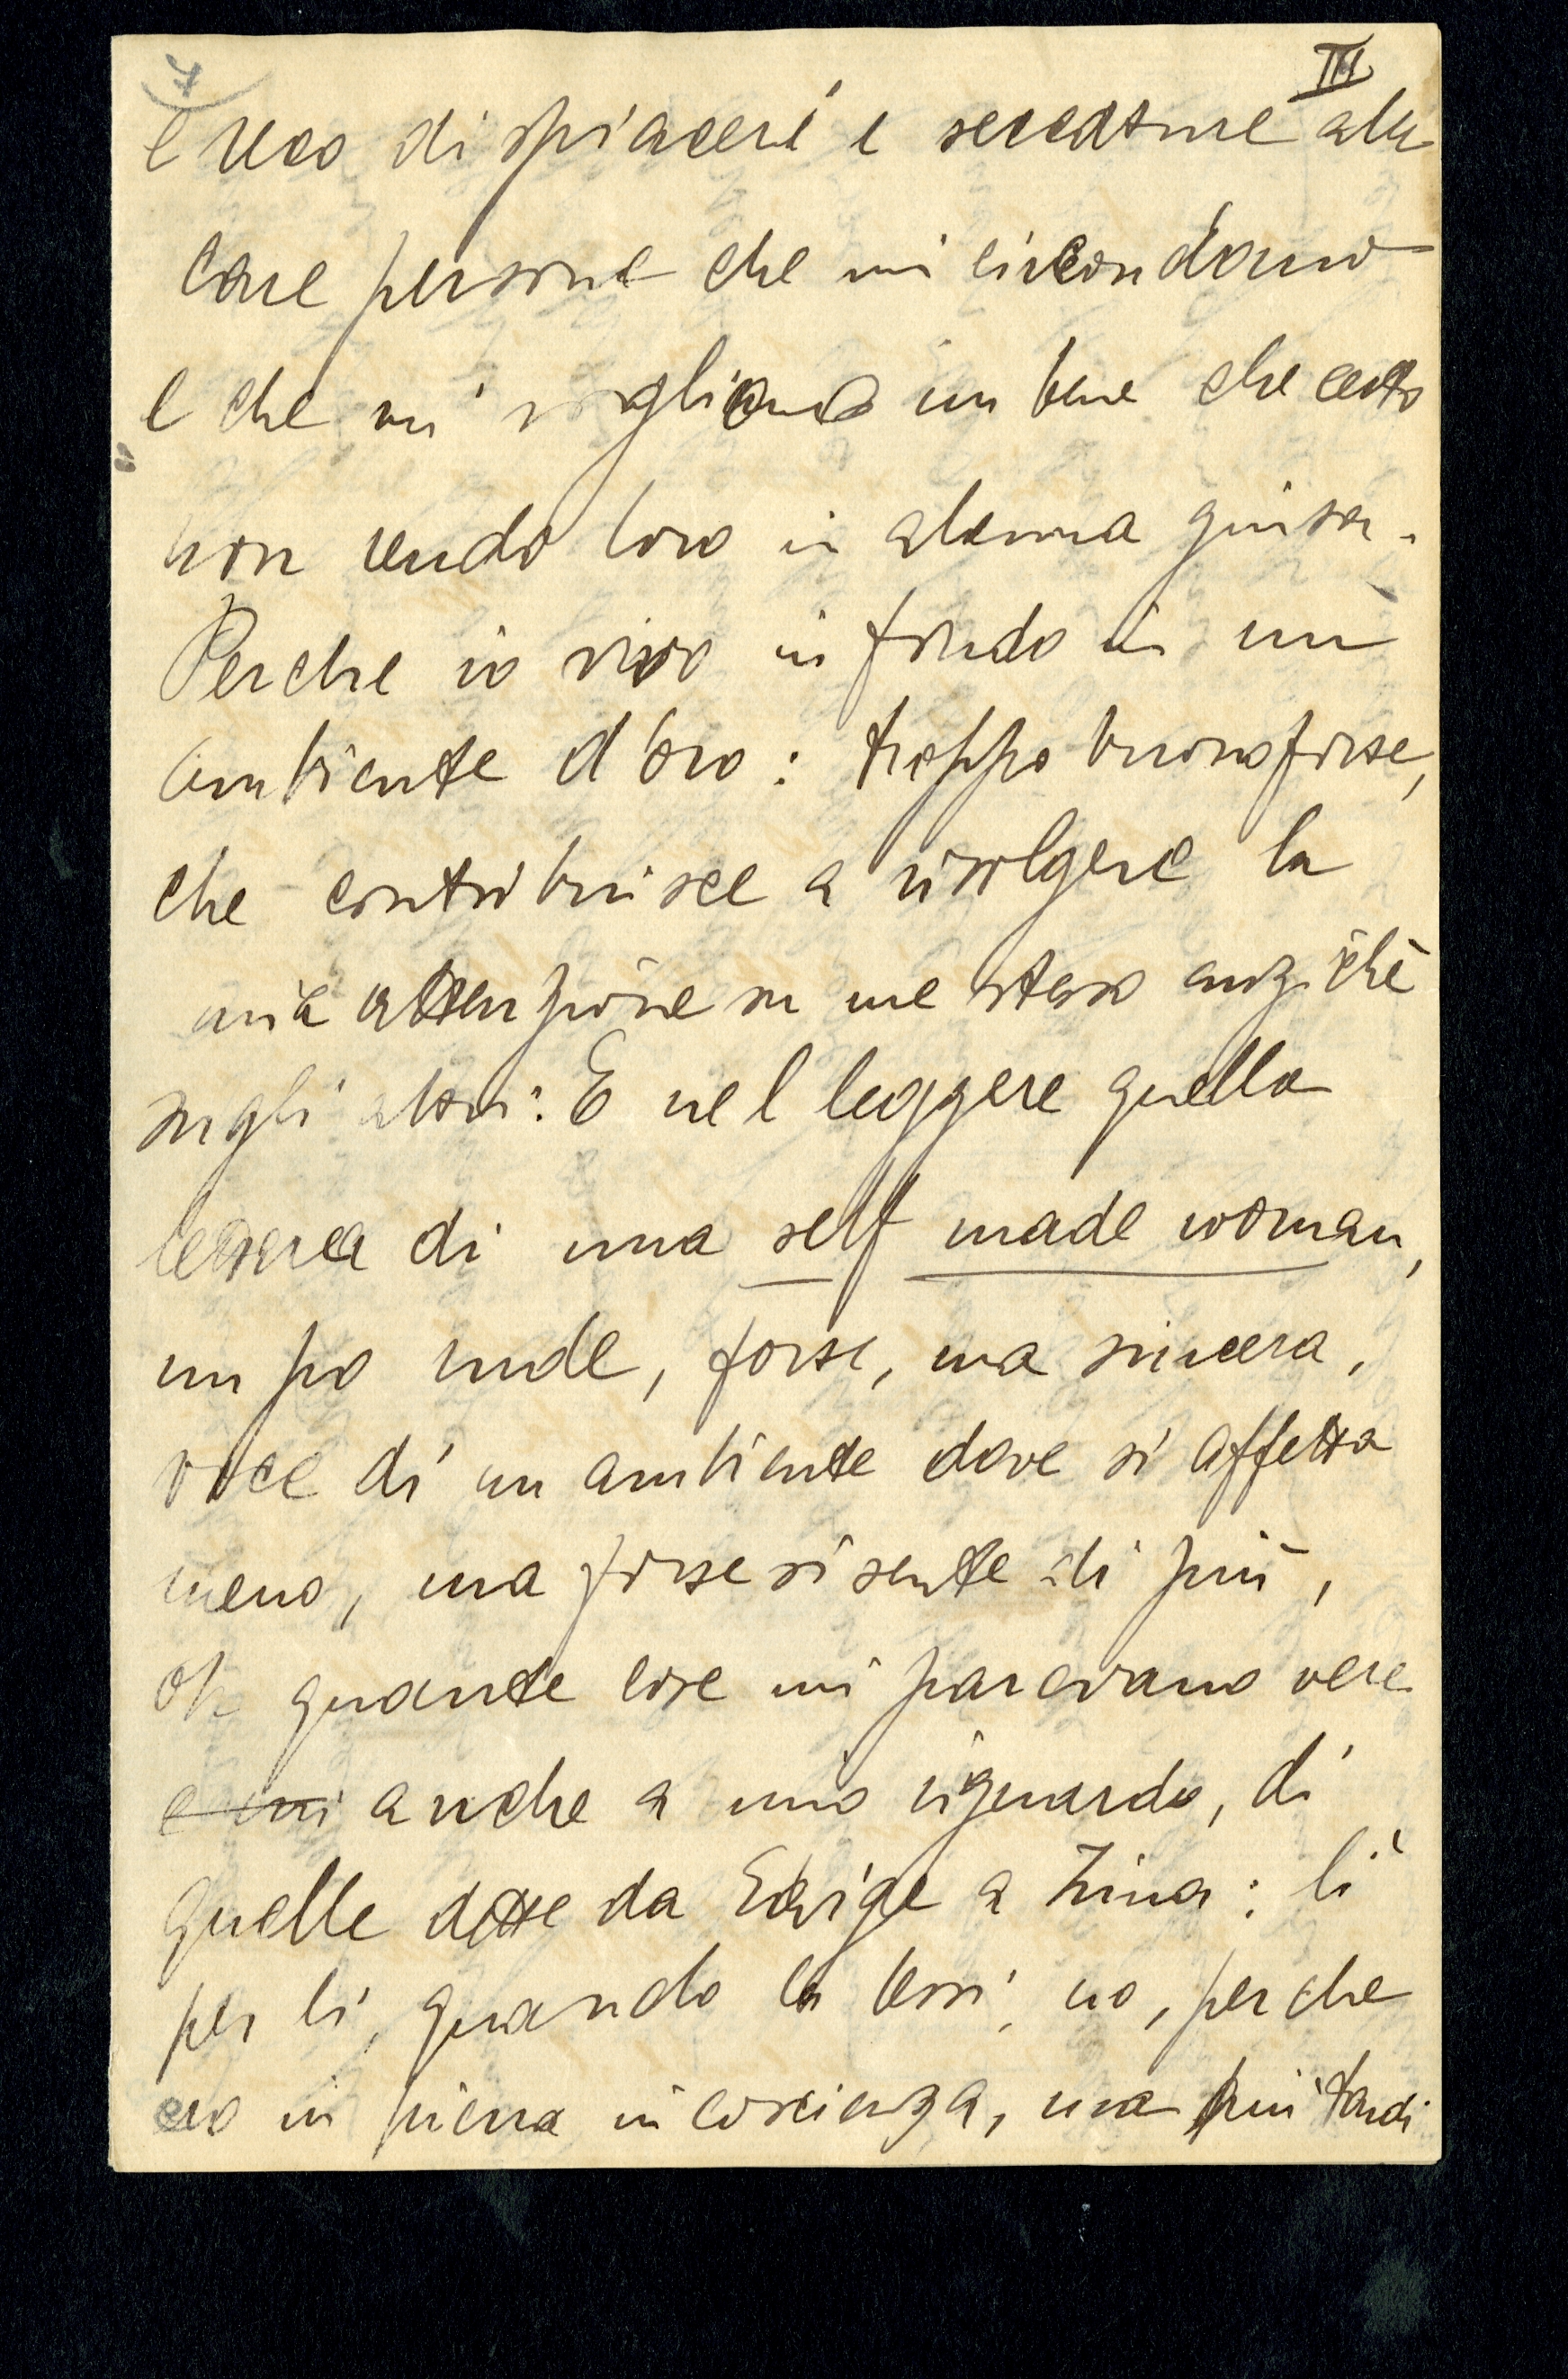 7
III
e reco dispiaceri e seccature alle
care persone che mi circondano
e che mi vogliono un bene che certo
non rendo loro in alcuna guisa.
Perche io vivo in fondo in un
ambiente d'oro: troppo buono forse,
che contribuisce a rivolgere la
mia attenzione su me stesso anzichè
sugli altri: E nel leggere quella
lettera di una self made woman,
un po rude, forse, ma sincera,
voce di un ambiente dove si affetta
meno, ma forse si sente di più,
oh quante cose mi parevano vere
e mi anche a mio riguardo, di
quelle dette da Edvige a Zina: lì
per lì, quando la lessi, no, perche
ero in piena incoscienza, ma più tardi